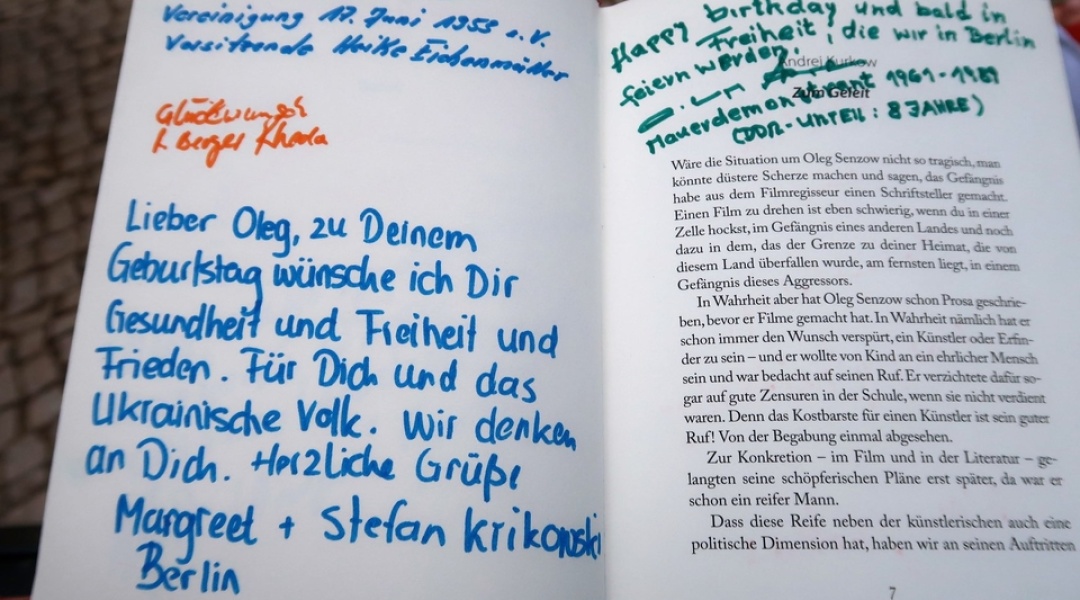 Vereinigung 17. Juni 1953 e.V.
Vorsitzende Heike Eichenmüller
Glückwunsch
Berger
Lieber Oleg, zu Deinem
Geburtstag wünsche ich Dir
Gesundheit und Freiheit und
Frieden. Für Dich und das
Ukrainische Volk. Wir denken
an Dich. Herzliche Grüße
Margreet + Stefan Krikowski
Berlin
Happy birthday und bald in
Freiheit, die wir in Berlin
feiern werden!
Mauerdemonstrant 1961-1989
(DDR-Urteil: 8 JAHRE)
Andrej Kurkow
Zum Geleit
Wäre die Situation um Oleg Senzow nicht so tragisch, man
könnte düstere Scherze machen und sagen, das Gefängnis
habe aus dem Filmregisseur einen Schriftsteller gemacht.
Einen Film zu drehen ist eben schwierig, wenn du in einer
Zelle hockst, im Gefängnis eines anderen Landes und noch
dazu in dem, das der Grenze zu deiner Heimat, die von
diesem Land überfallen wurde, am fernsten liegt, in einem
Gefängnis dieses Aggressors.
In Wahrheit aber hat Oleg Senzow schon Prosa geschrie-
ben, bevor er Filme gemacht hat. In Wahrheit nämlich hat er
schon immer den Wunsch verspürt, ein Künstler oder Erfin-
der zu sein – und er wollte von Kind an ein ehrlicher Mensch
sein und war bedacht auf seinen Ruf. Er verzichtete dafür so-
gar auf gute Zensuren in der Schule, wenn sie nicht verdient
waren. Denn das Kostbarste für einen Künstler ist sein guter
Ruf! Von der Begabung einmal abgesehen.
Zur Konkretion – im Film und in der Literatur – ge-
langten seine schöpferischen Pläne erst später, da war er
schon ein reifer Mann.
Dass diese Reife neben der künstlerischen auch eine
politische Dimension hat, haben wir an seinen Auftritten
7